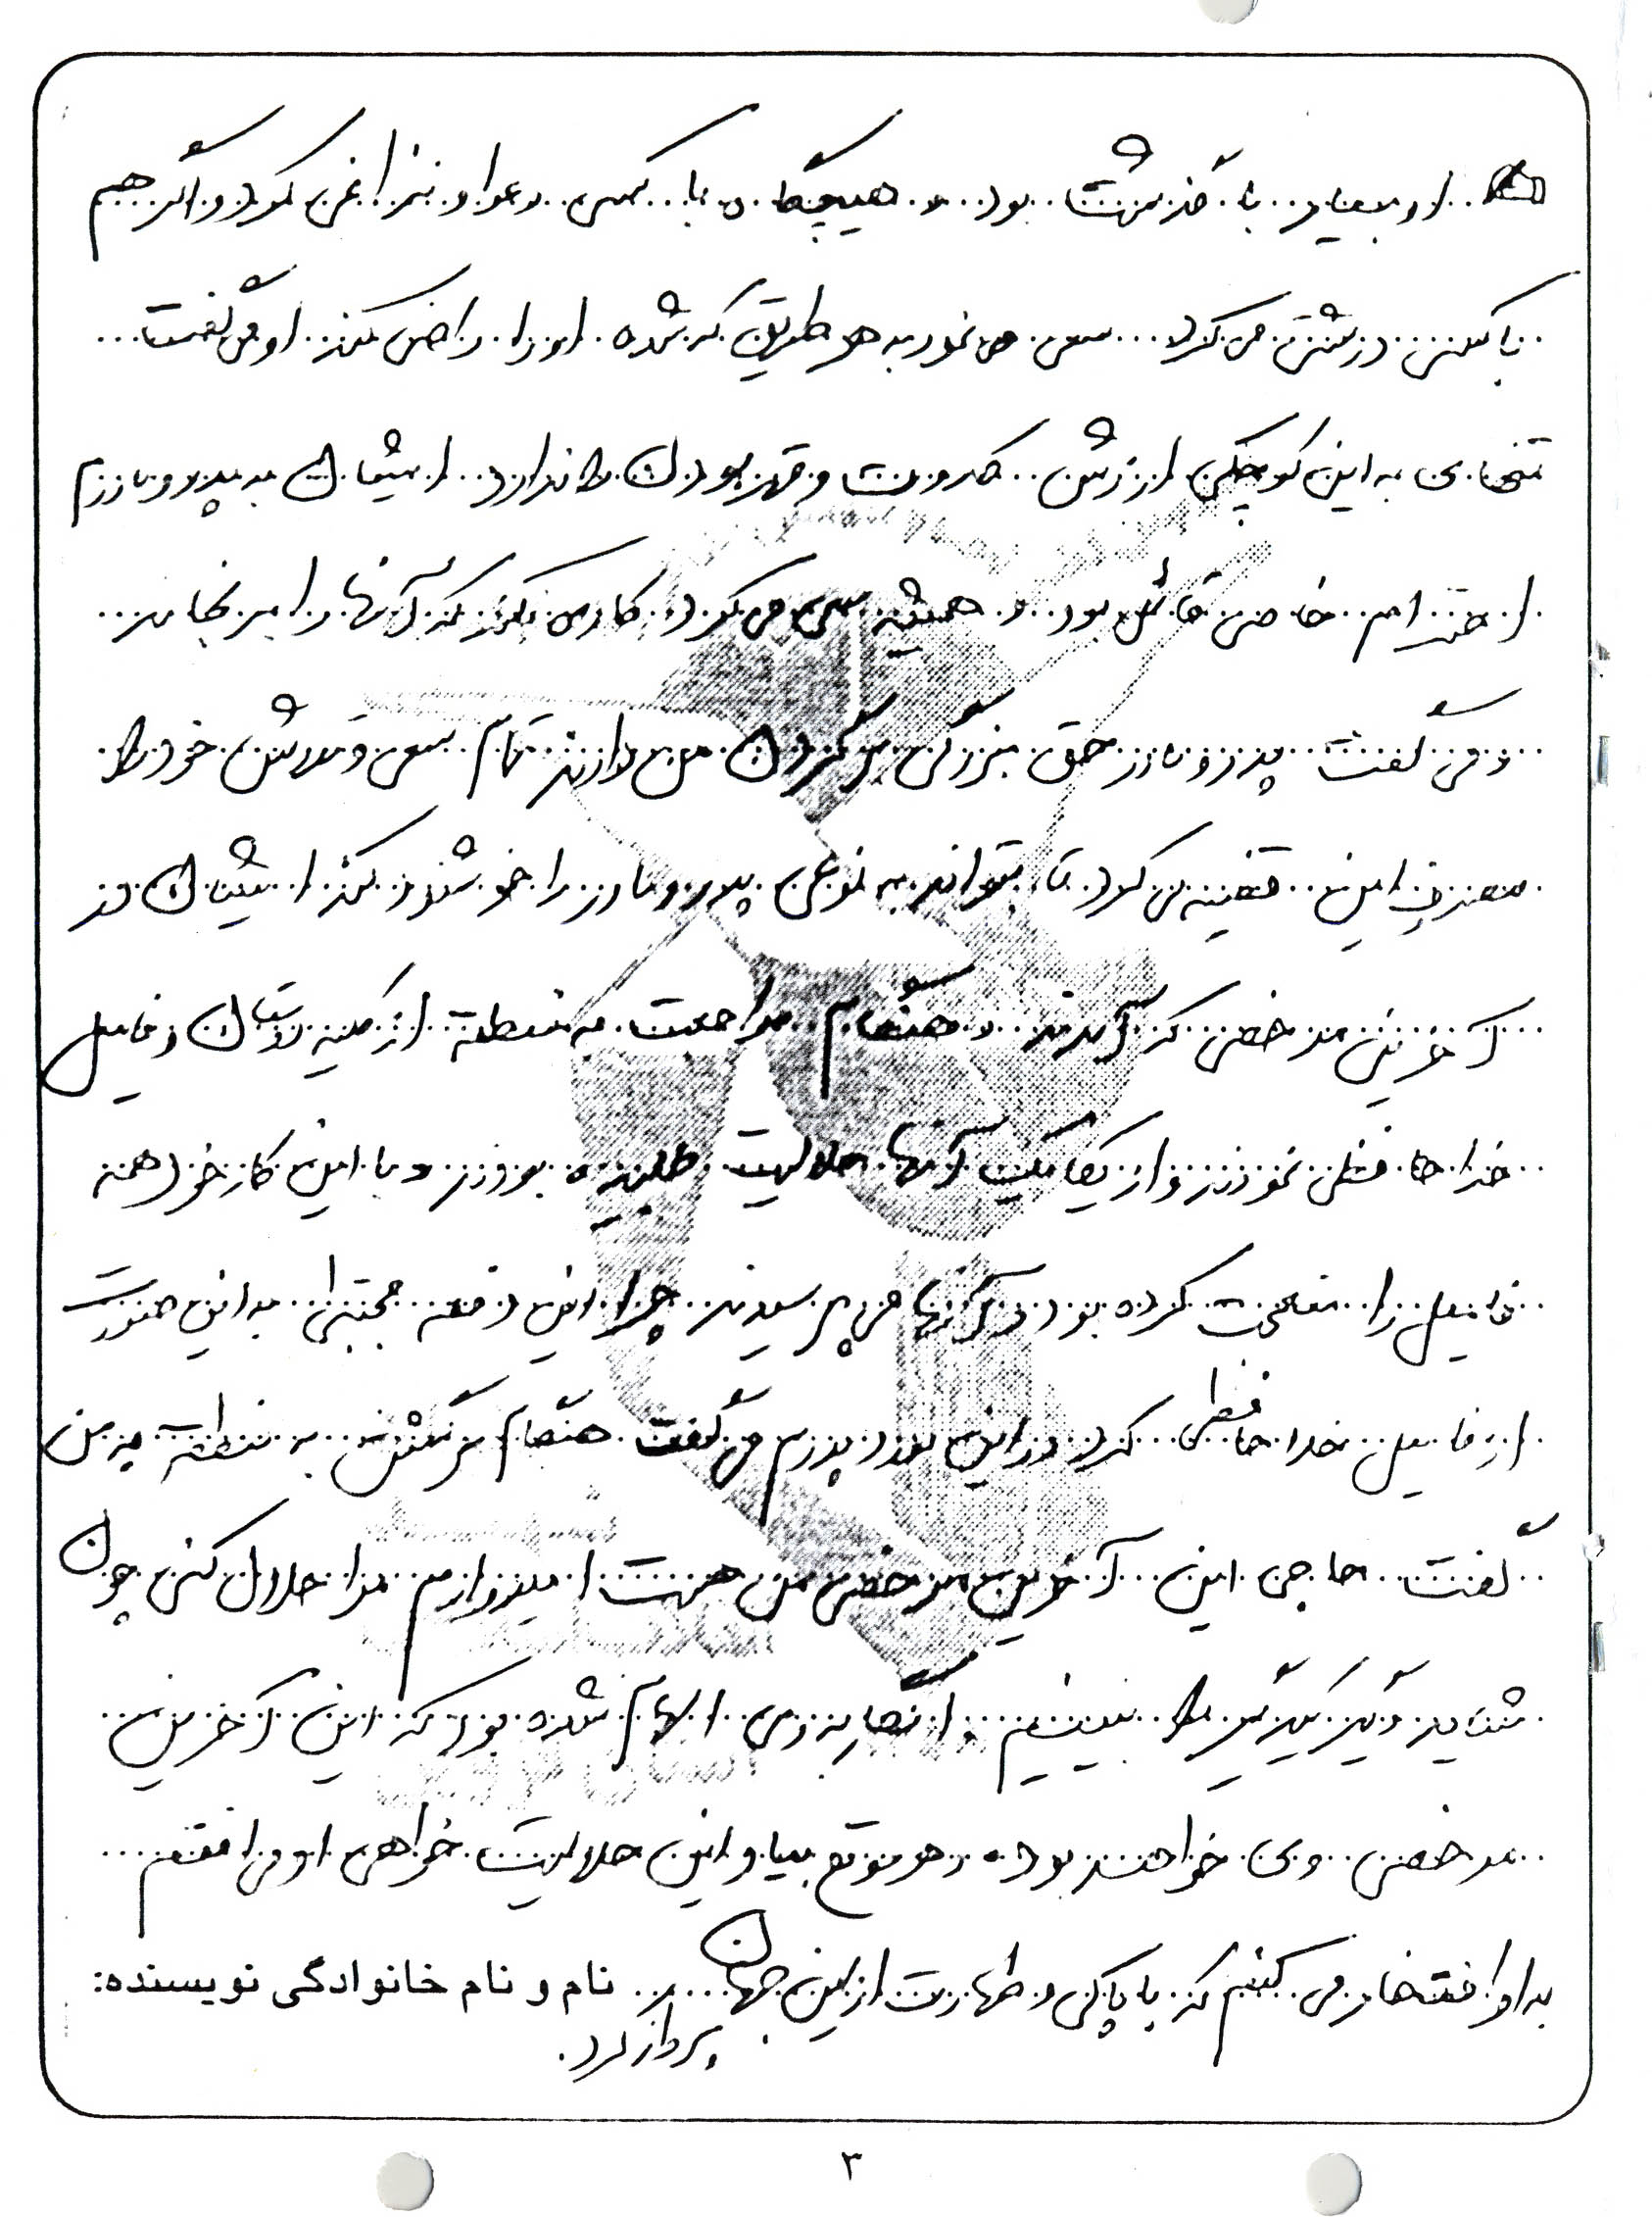 او بسیار با گذشت بود و هیچگاه با کسی دعوا و نزاعی نمی‌کرد و اگر هم
با کسی درشتی می کرد سعی می نمود به هر طریق که شده او را راضی کند او می گفت
به این کوچکی ارزش کدورت و قهر بودن را ندارد ایشان به پدر و مادرم
احترام خاصی قائل بود و همیشه سعی می کرد کاری نکند که آنها را برنجاند
و می گفت پدر و مادر حق بزرگی بر گردن من دارند تمام سعی و تلاش خود را
صرف این قضیه می کرد تا بتواند به نوعی پدر و مادر را خوشنود کند ایشان در
آخرین مرخصی که آمدند و هنگام مراجعت به منطقه از کلیه دوستان و فامیل
خداحافظی نمودند و از یکایک آنها حلالیت طلبیده بودند و با این کار خود همه
فامیل را متعجب کرده بود و آنها می پرسیدند چرا این دفعه مجتبی به این صورت
از فامیل خداحافظی کرد در این مورد پدرم می گفت هنگام برگشتن به منطقه به من
گفت حاجی این آخرین مرخصی من هست امیدوارم مرا حلال کنی چون
شاید دیگر یکدیگر را نبینیم انگار به وی الهام شده بود که این آخرین
مرخصی وی خواهد بود هر موقع بیاد این حلالیت خواهی او می افتم
به او افتخار می کنیم که با پاکی و طهارت از این جهان
پرواز کرد.
نام و نام خانوادگی نویسنده:
۳